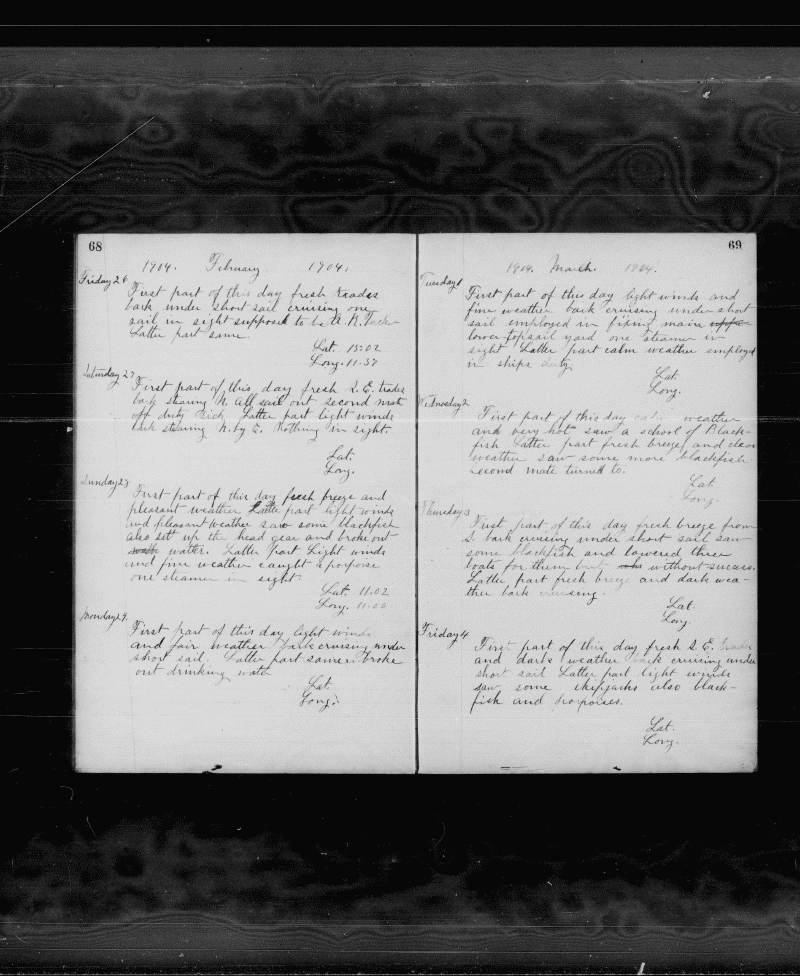 68
1904. February. 1904.
Friday 26
First part of this day fresh trades
bark under short sail cruising one
sail in sight supposed to be A. R. Tucker
Latter part same.
Lat. 15.02
Long. 11.37
Saturday 27
First part of this day fresh S.E. trades
bark stearing N. all sail out second mate
off duty sick. Latter part light winds
bark stearing N. by E. Nothing in sight.
Lat.
Long.
Sunday 28
First part of this day fresh breeze and
pleasant weather Latter part light winds
and pleasant weather saw some blackfish
also set up the head gear and broke out
water. Latter part Light winds
and fine weather caught a porpoise
one steamer in sight.
Lat. 11.02
Long. 11.00
Monday 29.
First part of this day light winds
and fair weather bark cruising under
short sail. Latter part same broke
out drinking water
Lat.
Long.
69
1904. March. 1904.
Tuesday 1
First part of this day light winds and
fine weather bark cruising under short
sail employed in fixing main
lower topsail yard one steamer in
sight Latter part calm weather employed
in ships duty.
Lat.
Long.
Wednesday 2
First part of this day calm weather
and very hot saw a school of Black-
fish Latter part fresh breeze and clear
weather saw some more blackfish
second mate turned to.
Lat.
Long.
Thursday 3
First part of this day fresh breeze from
S. bark cruising under short sail saw
some blackfish and lowered three
boats for them but without success.
Latter part fresh breeze and dark wea-
ther bark cruising.
Lat
Long.
Friday 4
First part of this day fresh S.E. trades
and dark weather bark cruising under
short sail Latter part light winds
saw some skipjacks also black-
fish and porpoises.
Lat.
Long.